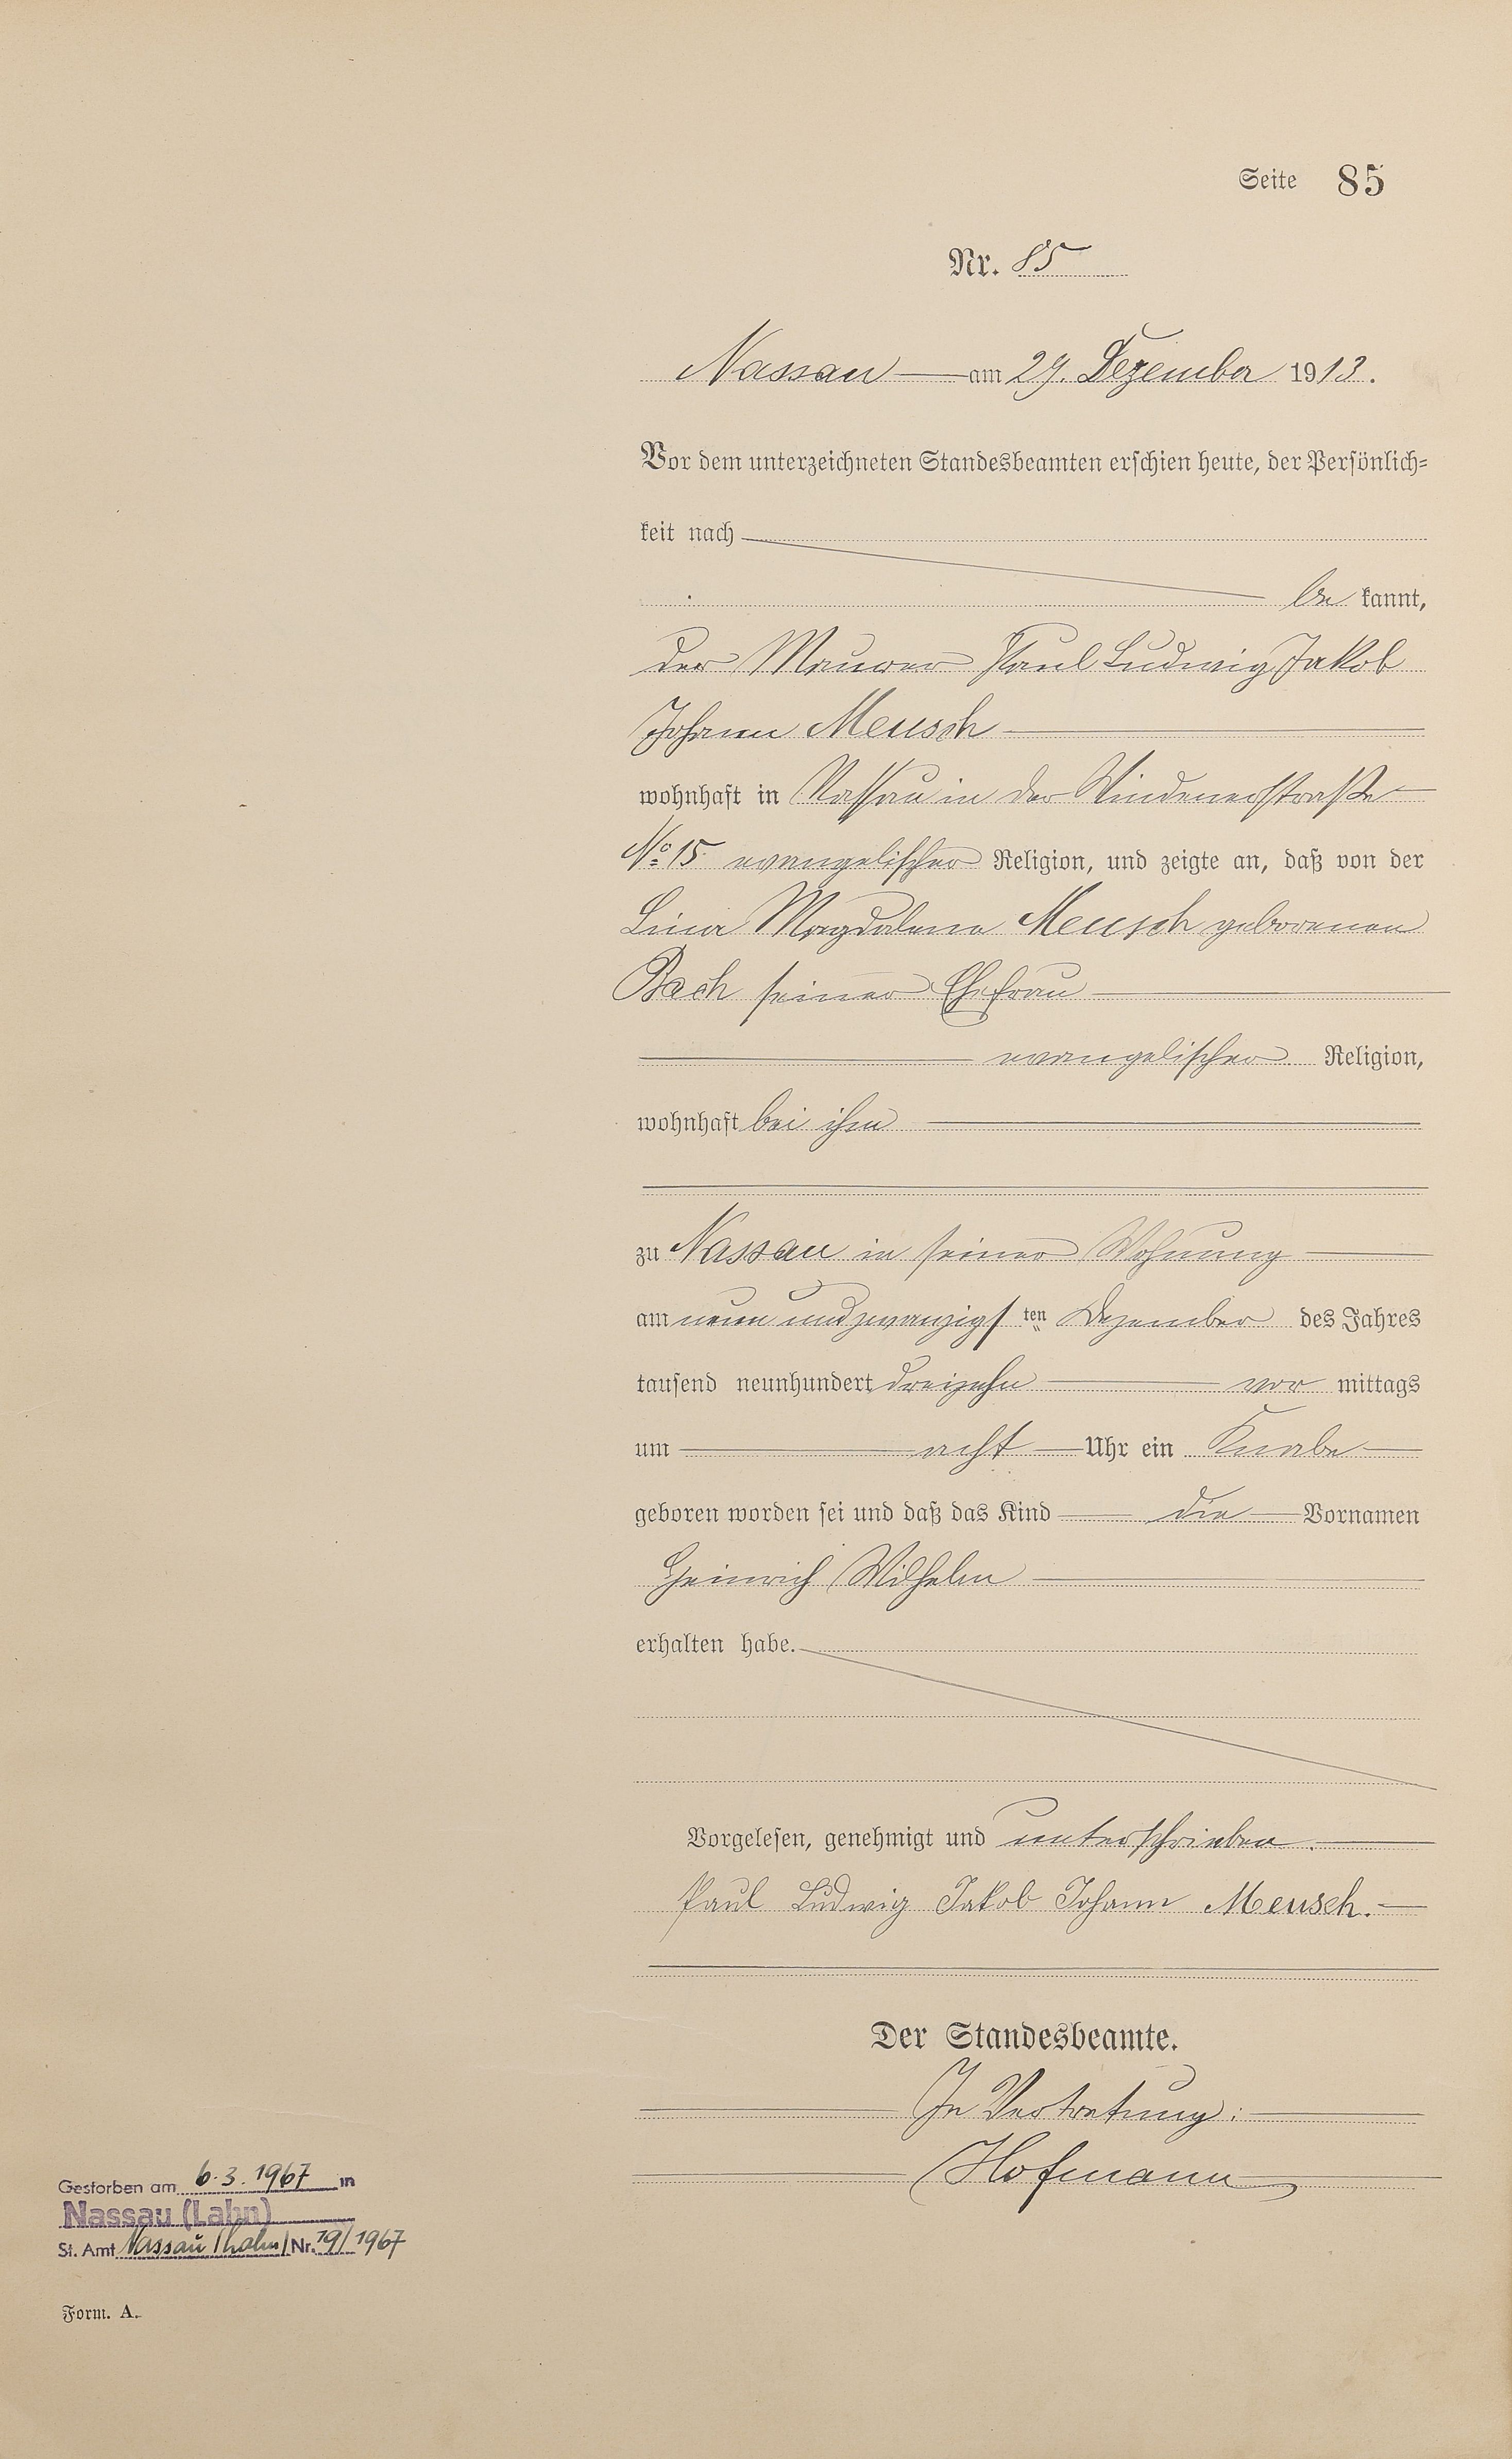 Seite 85
Nr. 85
Nassau am 29. Dezember 1913.
Vor dem unterzeichneten Standesbeamten erschien heute, der Persönlich-
keit nach
be kannt,
der Maurer Paul Ludwig Jakob
Johann Meusch
wohnhaft in Nassau in der Windenerstraße
No 15 evangelischer Religion, und zeigte an, daß von der
Lina Magdalena Meusch geborenen
Bach seiner Ehefrau
evangelischer Religion,
wohnhaft bei ihm
zu Nassau in seiner Wohnung
am neun und zwanzigsten Dezember des Jahres
tausend neunhundert dreizehn vor mittags
um acht Uhr ein Knabe
geboren worden sei und daß das Kind die Vornamen
Heinrich Wilhelm
erhalten habe.
Vorgelesen, genehmigt und unterschrieben.
Paul Ludwig Jakob Johann Meusch.
Der Standesbeamte.
In Vertretung:
Hofmann
Gestorben am 6.3.1967 in
Nassau (Lahn)
St. Amt Nassau (Lahn) Nr. 19/1967
Form. A.